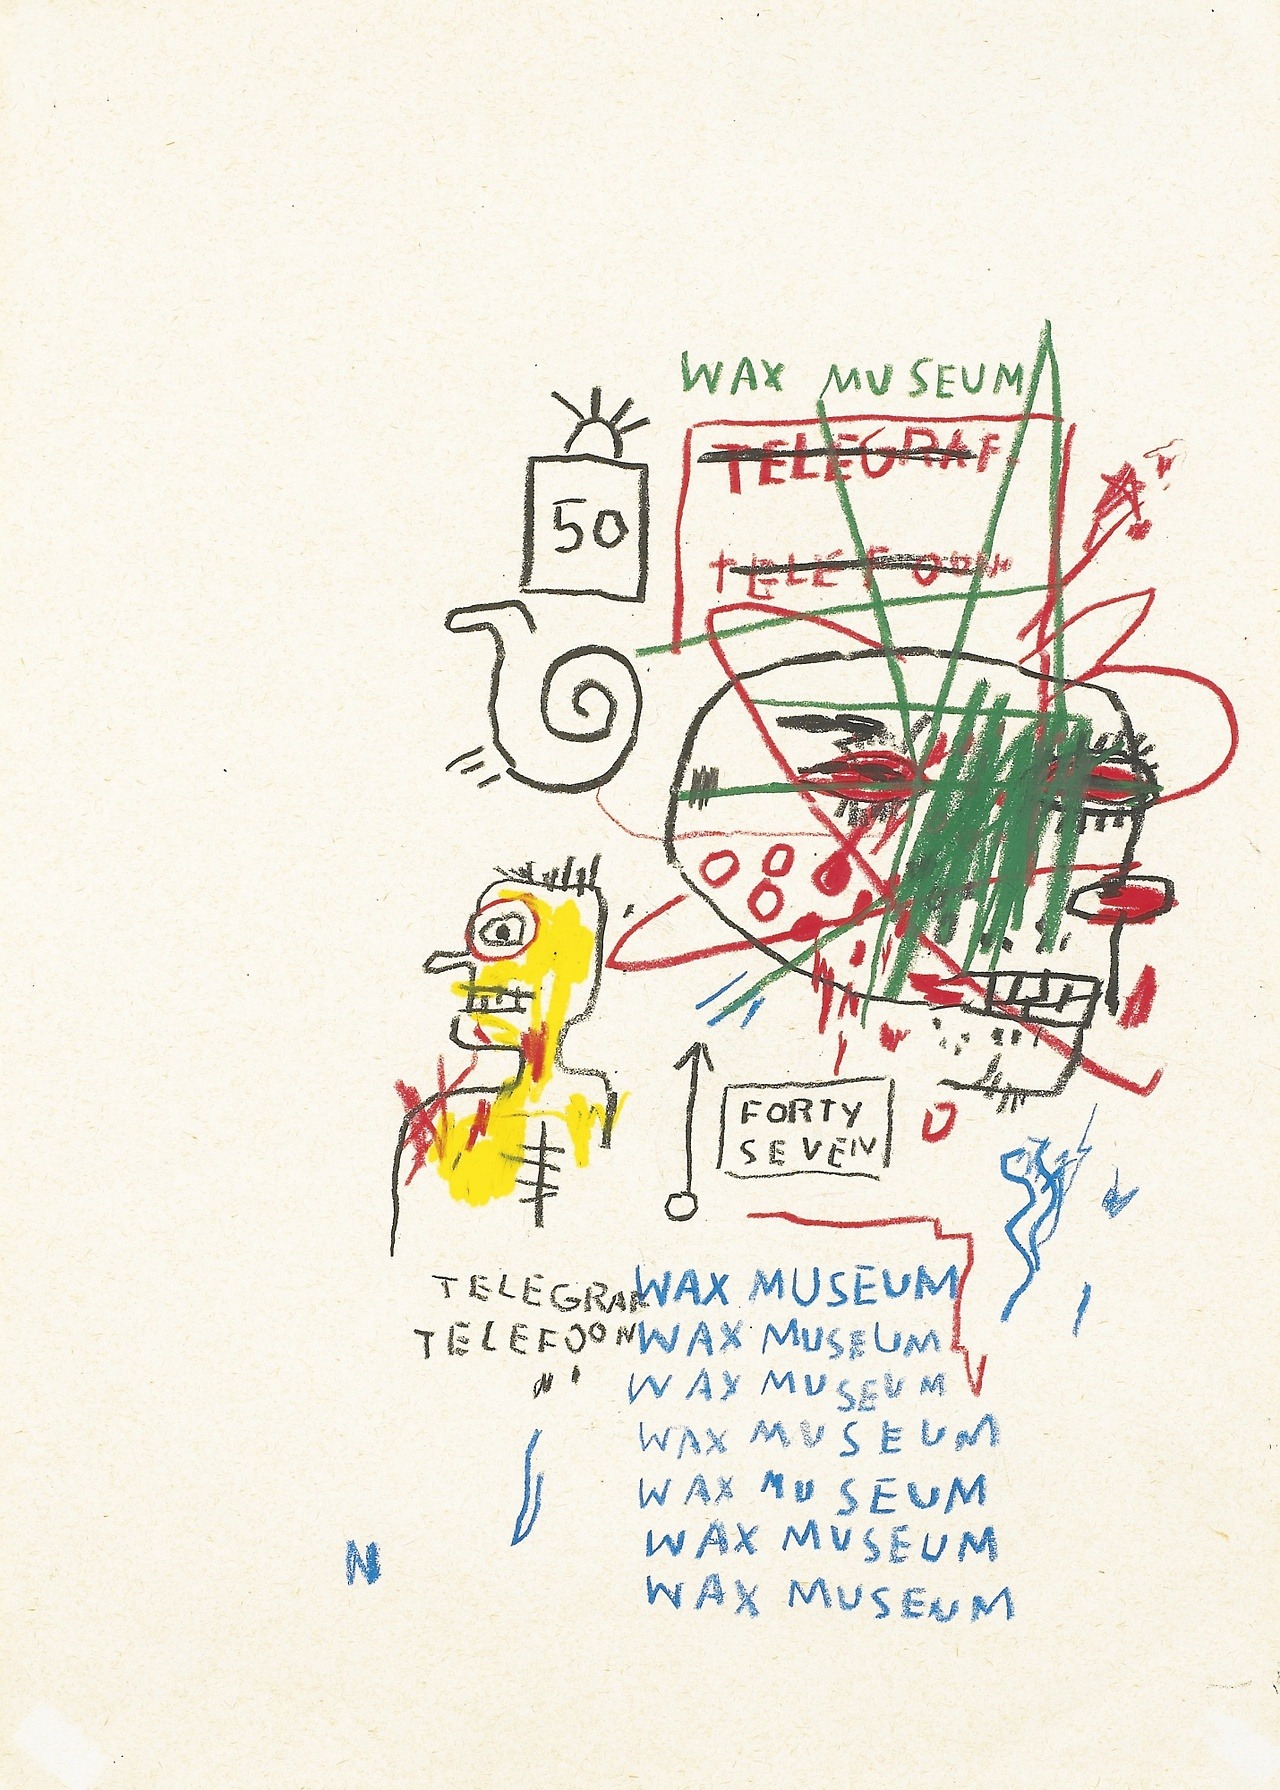 WAX MUSEUM
TELEGRAF
TELEFOON
50
FORTY
SEVEN
TELEGRAF
TELEFOON
WAX MUSEUM
WAX MUSEUM
WAX MUSEUM
WAX MUSEUM
WAX MUSEUM
WAX MUSEUM
WAX MUSEUM
N